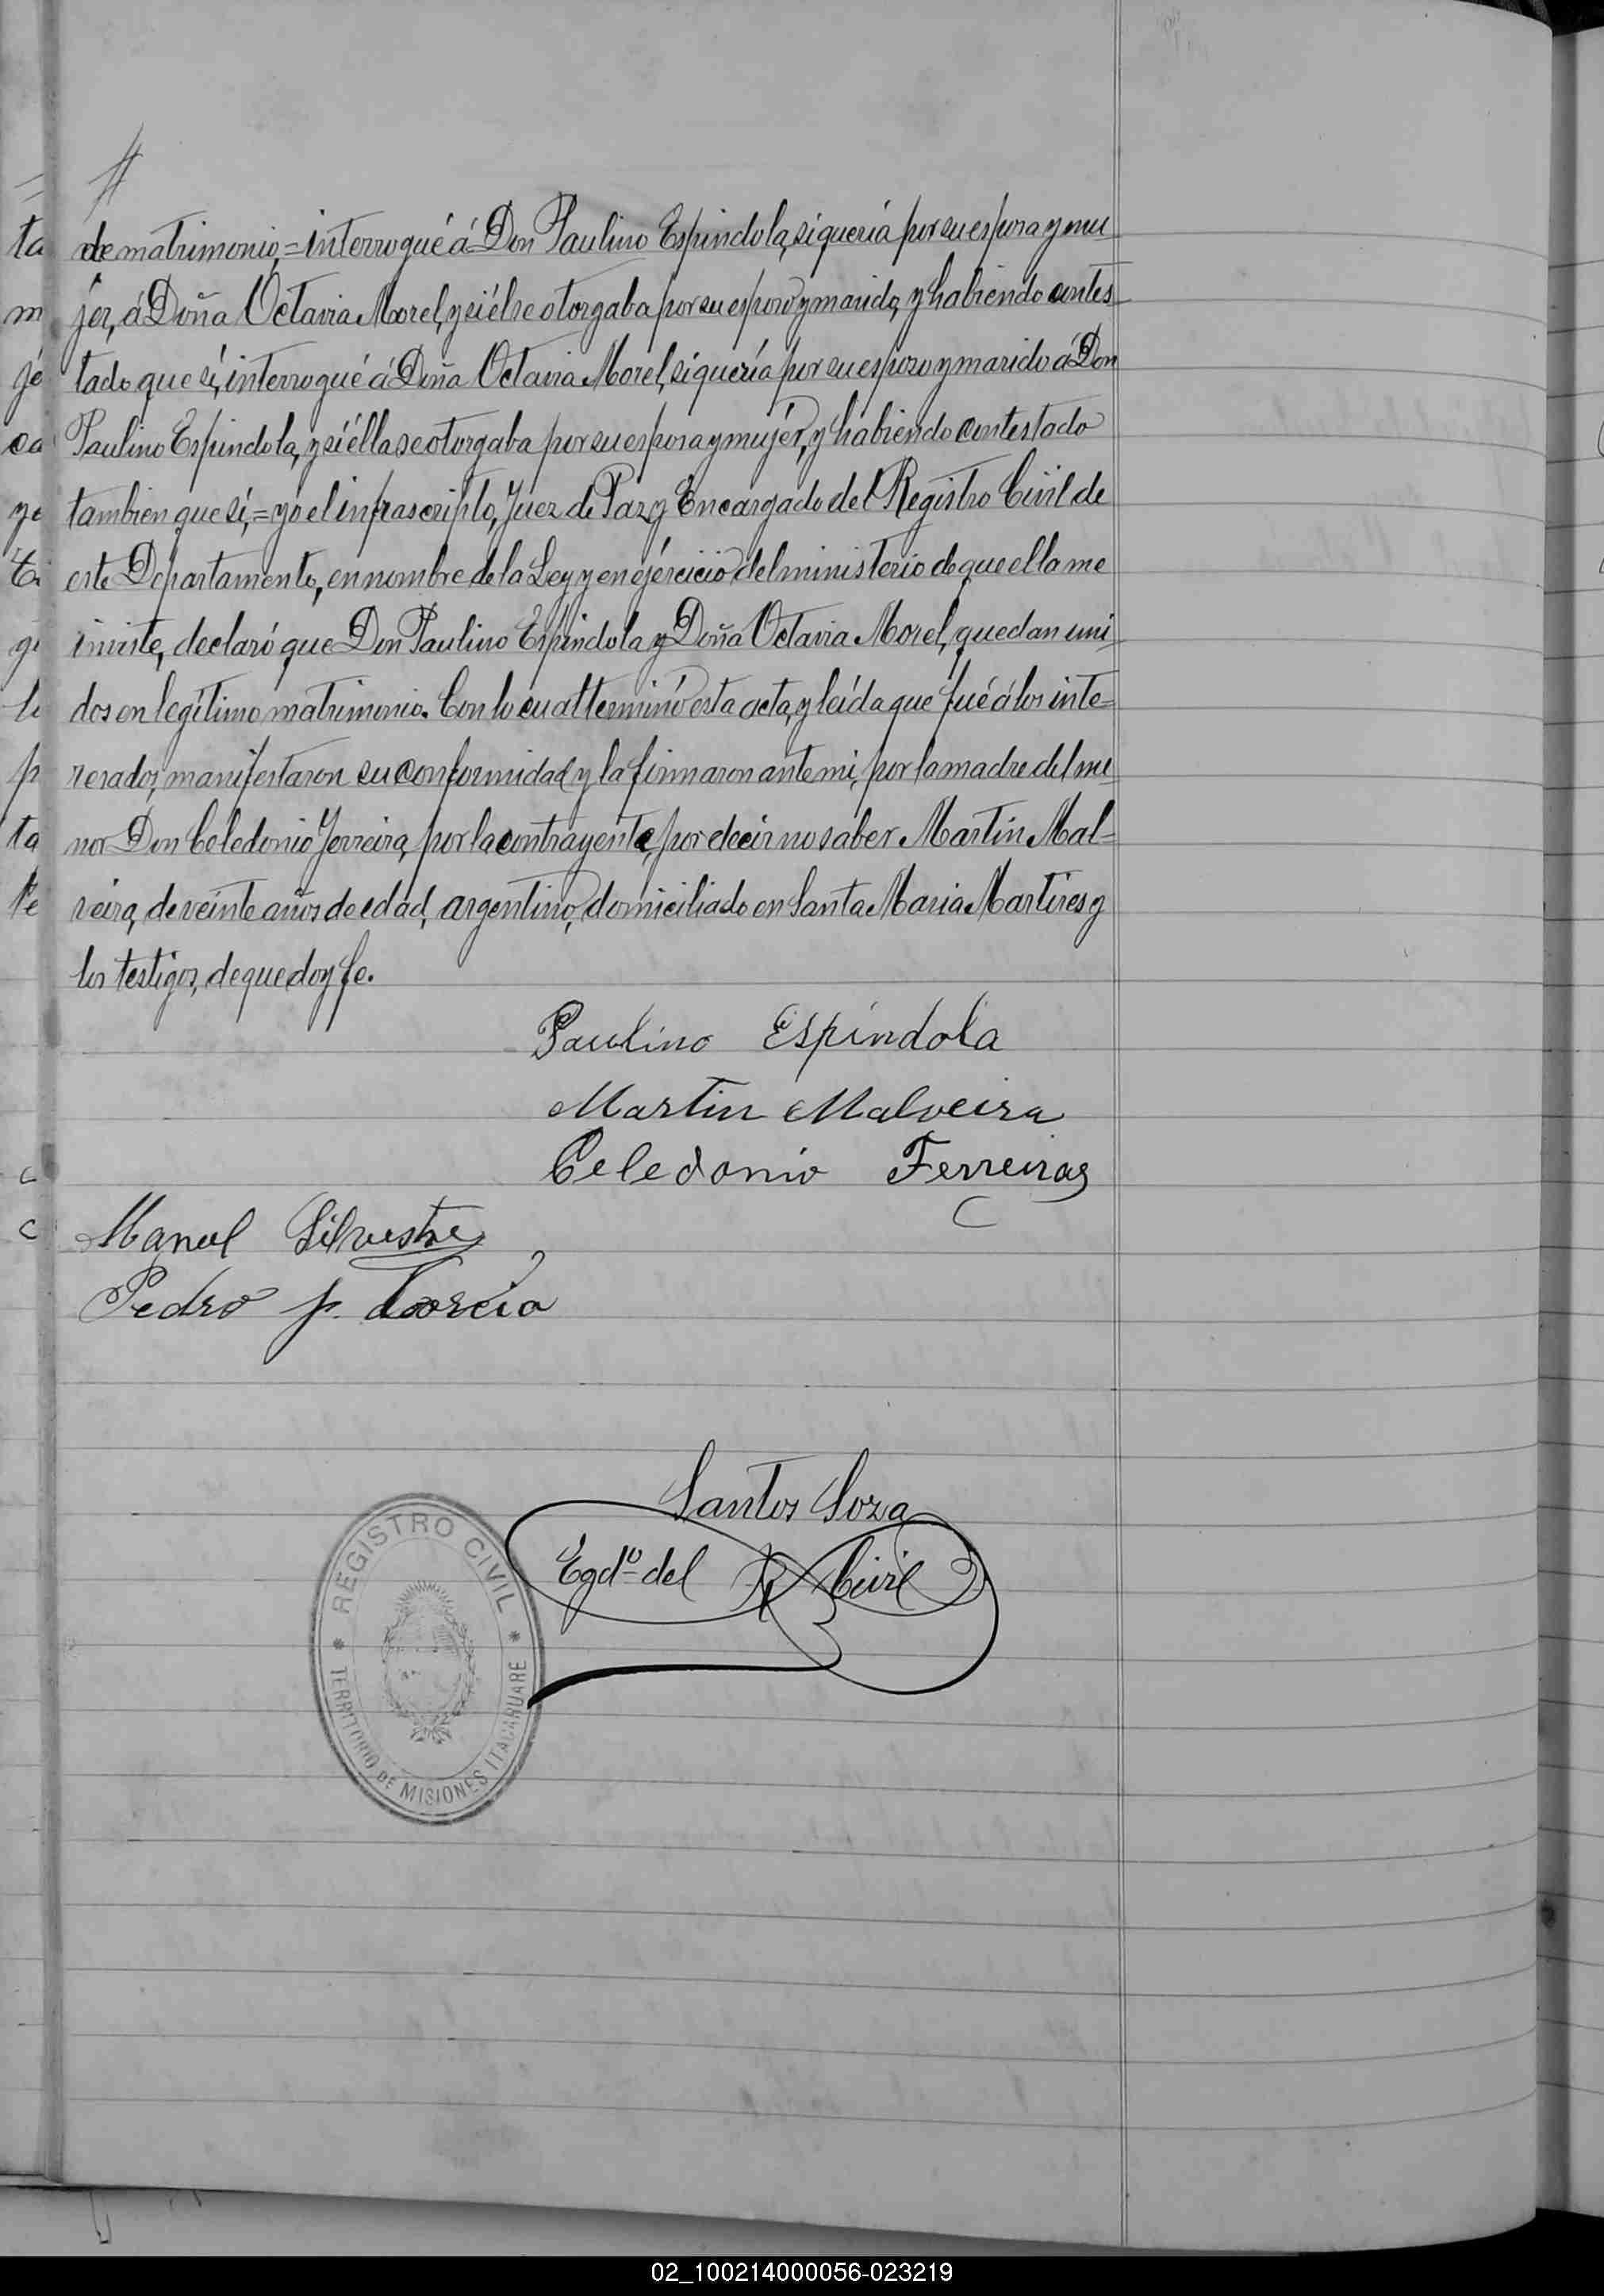 de matrimonio,=interrogué á Don Paulino Espindola, si queria por su esposa y mu-
jer, á Doña Octavia Morel, y si él se otorgaba por su esposo y marido, y habiendo contes-
tado que sí, interrogué á Doña Octavia Morel, si quería por su esposo y marido á Don
Paulino Espindola, y si élla se otorgaba por su esposa y mujér, y habiendo contestado
tambien que sí,=yo el infrascripto, Juez de Paz y Encargado del Registro Civil de
este Departamento, en nombre de la Ley y en ejércicio del ministerio de que ella me
inviste, declaró que Don Paulino Espindola y Doña Octavia Morel, quedan uni-
dos en legítimo matrimonio. Con lo cual terminó esta acta, y leída que fué á los inte=
resados, manifestaron su conformidad y la firmaron ante mi, por la madre del me
nor Don Celedonio Ferreira, por la contrayente, por decir no saber Martín Mal=
veira, de veinte años de edad, argentino, domiciliado en Santa Maria Martires y
los testigos, de que doy fe.
Paulino Espíndola
Martin Malveira
Celedonio Ferreira
Manuel Silvestre
Pedro J. García
Santos Soza
Egdº del R. Civil
REGISTRO CIVIL
TERRITORIO DE MISIONES ITACARUARE
02_100214000056-023219